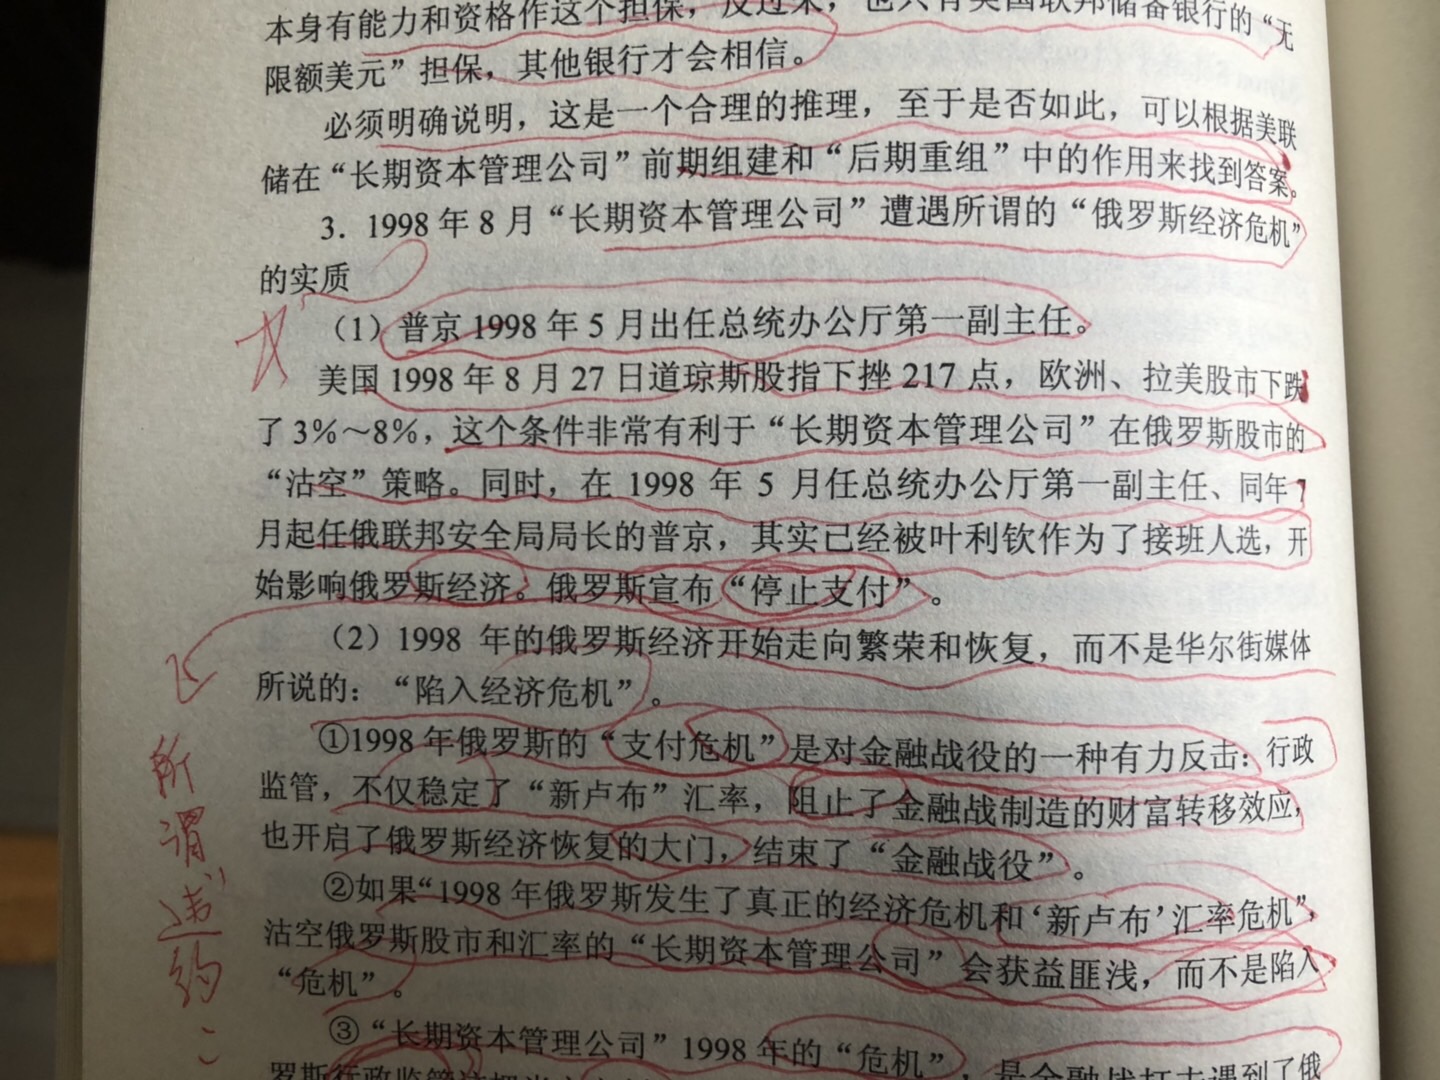 本身有能力和资格作这个担保，反过来，也只有美国联邦储备银行的“无
限额美元”担保，其他银行才会相信。
必须明确说明，这是一个合理的推理，至于是否如此，可以根据美联
储在“长期资本管理公司”前期组建和“后期重组”中的作用来找到答案。
3．1998年8月“长期资本管理公司”遭遇所谓的“俄罗斯经济危机”
的实质
（1）普京1998年5月出任总统办公厅第一副主任。
美国1998年8月27日道琼斯股指下挫217点，欧洲、拉美股市下跌
了3％～8％，这个条件非常有利于“长期资本管理公司”在俄罗斯股市的
“沽空”策略。同时，在1998年5月任总统办公厅第一副主任、同年7
月起任俄联邦安全局局长的普京，其实已经被叶利钦作为了接班人选，开
始影响俄罗斯经济。俄罗斯宣布“停止支付”。
（2）1998年的俄罗斯经济开始走向繁荣和恢复，而不是华尔街媒体
所说的：“陷入经济危机”。
①1998年俄罗斯的“支付危机”是对金融战役的一种有力反击：行政
监管，不仅稳定了“新卢布”汇率，阻止了金融战制造的财富转移效应，
也开启了俄罗斯经济恢复的大门，结束了“金融战役”。
②如果“1998年俄罗斯发生了真正的经济危机和‘新卢布’汇率危机”，
沽空俄罗斯股市和汇率的“长期资本管理公司”会获益匪浅，而不是陷入
“危机”。
③“长期资本管理公司”1998年的“危机”，是金融战打击遇到了俄
罗斯行政监管
所谓“违约”：